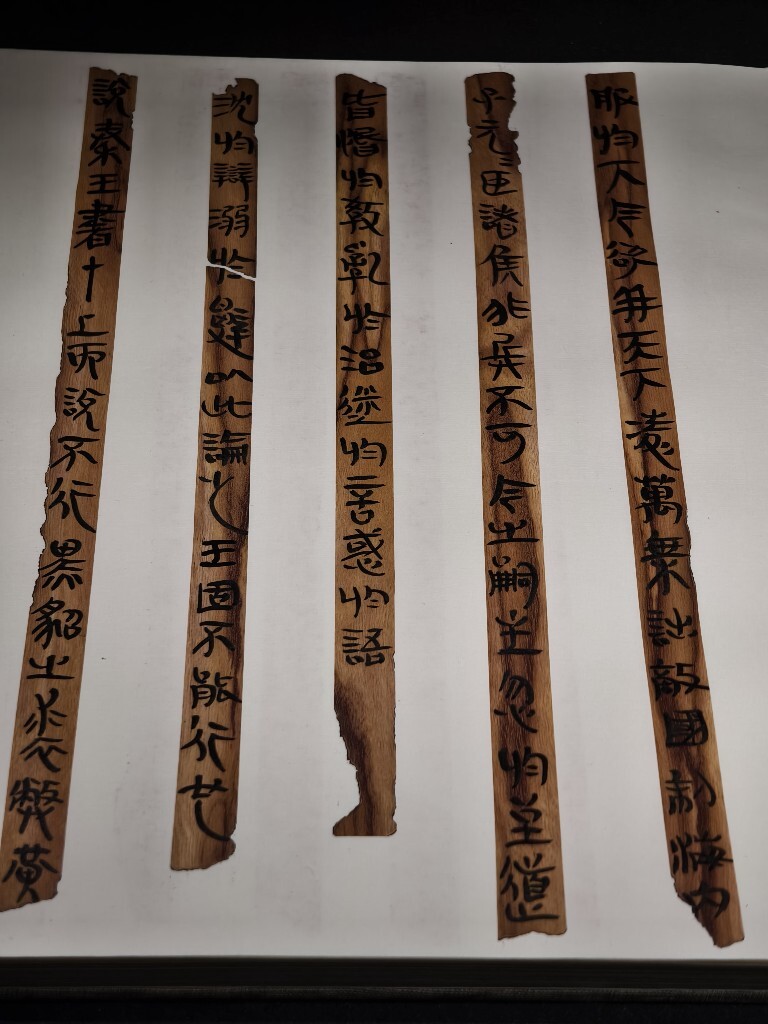 服於下今欲并天下淩萬乘詘敵國制海內
子元=臣諸侯非兵不可今之嗣主忽於至道
皆惛於教亂於治迷於言惑於語
沈於辯溺於辭以此論之王固不能行也
說秦王書十上而說不行黑貂之裘弊黃